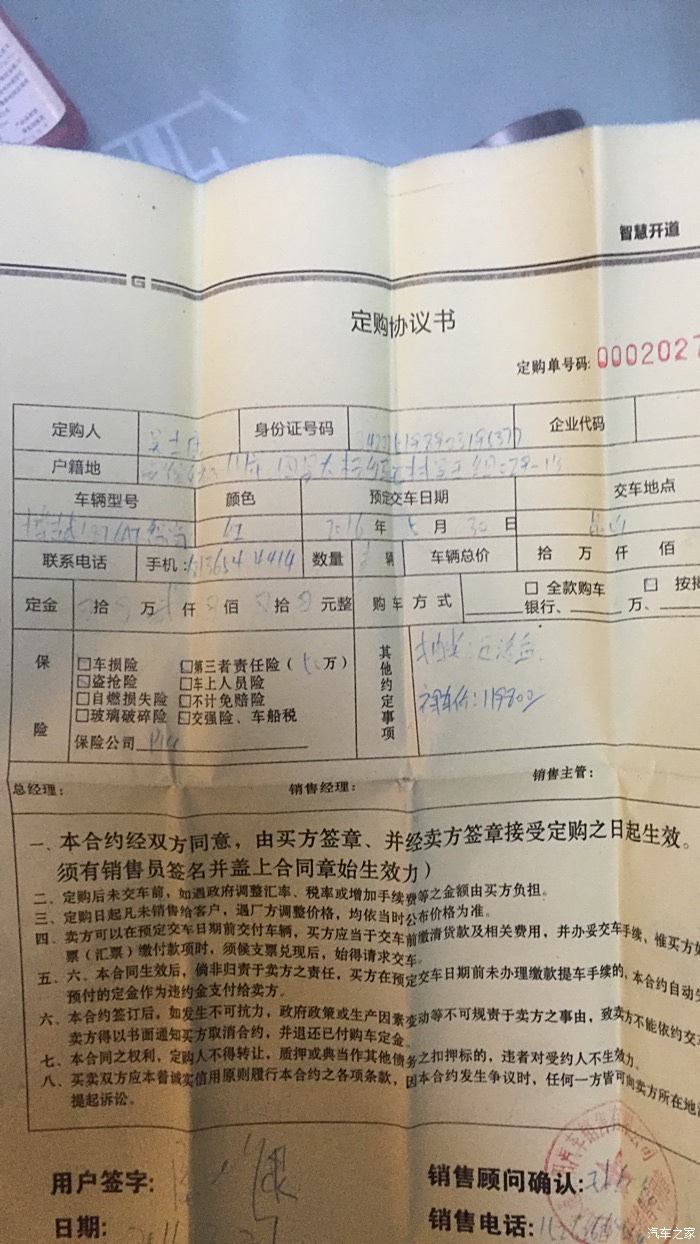 智慧开道
G
定购协议书
定购单号码: 0002027
定购人 身份证号码 企业代码
户籍地
车辆型号 颜色 预定交车日期 交车地点
红 2016 年 5 月 30 日
联系电话 手机: 数量 辆 车辆总价 拾 万 仟 佰
定金 拾 万 仟 佰 拾 元整 购车方式 □ 全款购车 □ 按揭
银行、 万、
保险 其他约定事项
□车损险 □第三者责任险( 50 万)
□盗抢险 □车上人员险
□自燃损失险 □不计免赔险
□玻璃破碎险 □交强险、车船税
保险公司
裸车价:119800
总经理: 销售经理: 销售主管:
一、本合约经双方同意,由买方签章、并经卖方签章接受定购之日起生效。
须有销售员签名并盖上合同章始生效力)
二、定购后未交车前,如遇政府调整汇率、税率或增加手续费等之金额由买方负担。
三、定购日起凡未销售给客户,遇厂方调整价格,均依当时公布价格为准。
四、卖方可以在预定交车日期前交付车辆,买方应当于交车前缴清货款及相关费用,并办妥交车手续,惟买方如
票(汇票)缴付款项时,须候支票兑现后,始得请求交车。
五、六、本合同生效后,倘非归责于卖方之责任,买方在预定交车日期前未办理缴款提车手续的,本合约自动
预付的定金作为违约金支付给卖方。
六、本合约签订后,如发生不可抗力,政府政策或生产因素变动等不可规责于卖方之事由,致卖方不能依约交
卖方得以书面通知买方取消合约,并退还已付购车定金。
七、本合同之权利,定购人不得转让,质押或典当作其他债务之扣押标的,违者对受约人不生效力。
八、买卖双方应本普诚实信用原则履行本合约之各项条款,因本合约发生争议时,任何一方皆可向卖方所在地
提起诉讼。
用户签字: 销售顾问确认:
日期: 销售电话:
汽车之家